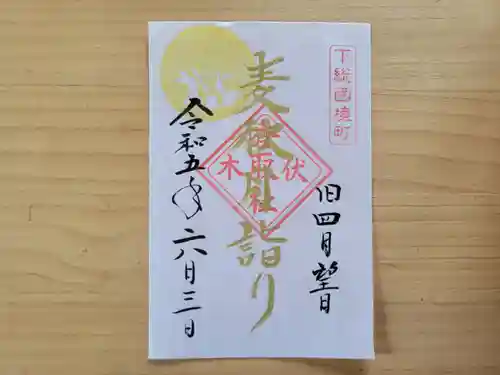 下総国境町
旧四月望日
麦秋月詣り
伏木
香取
神社
令和五年六月三日